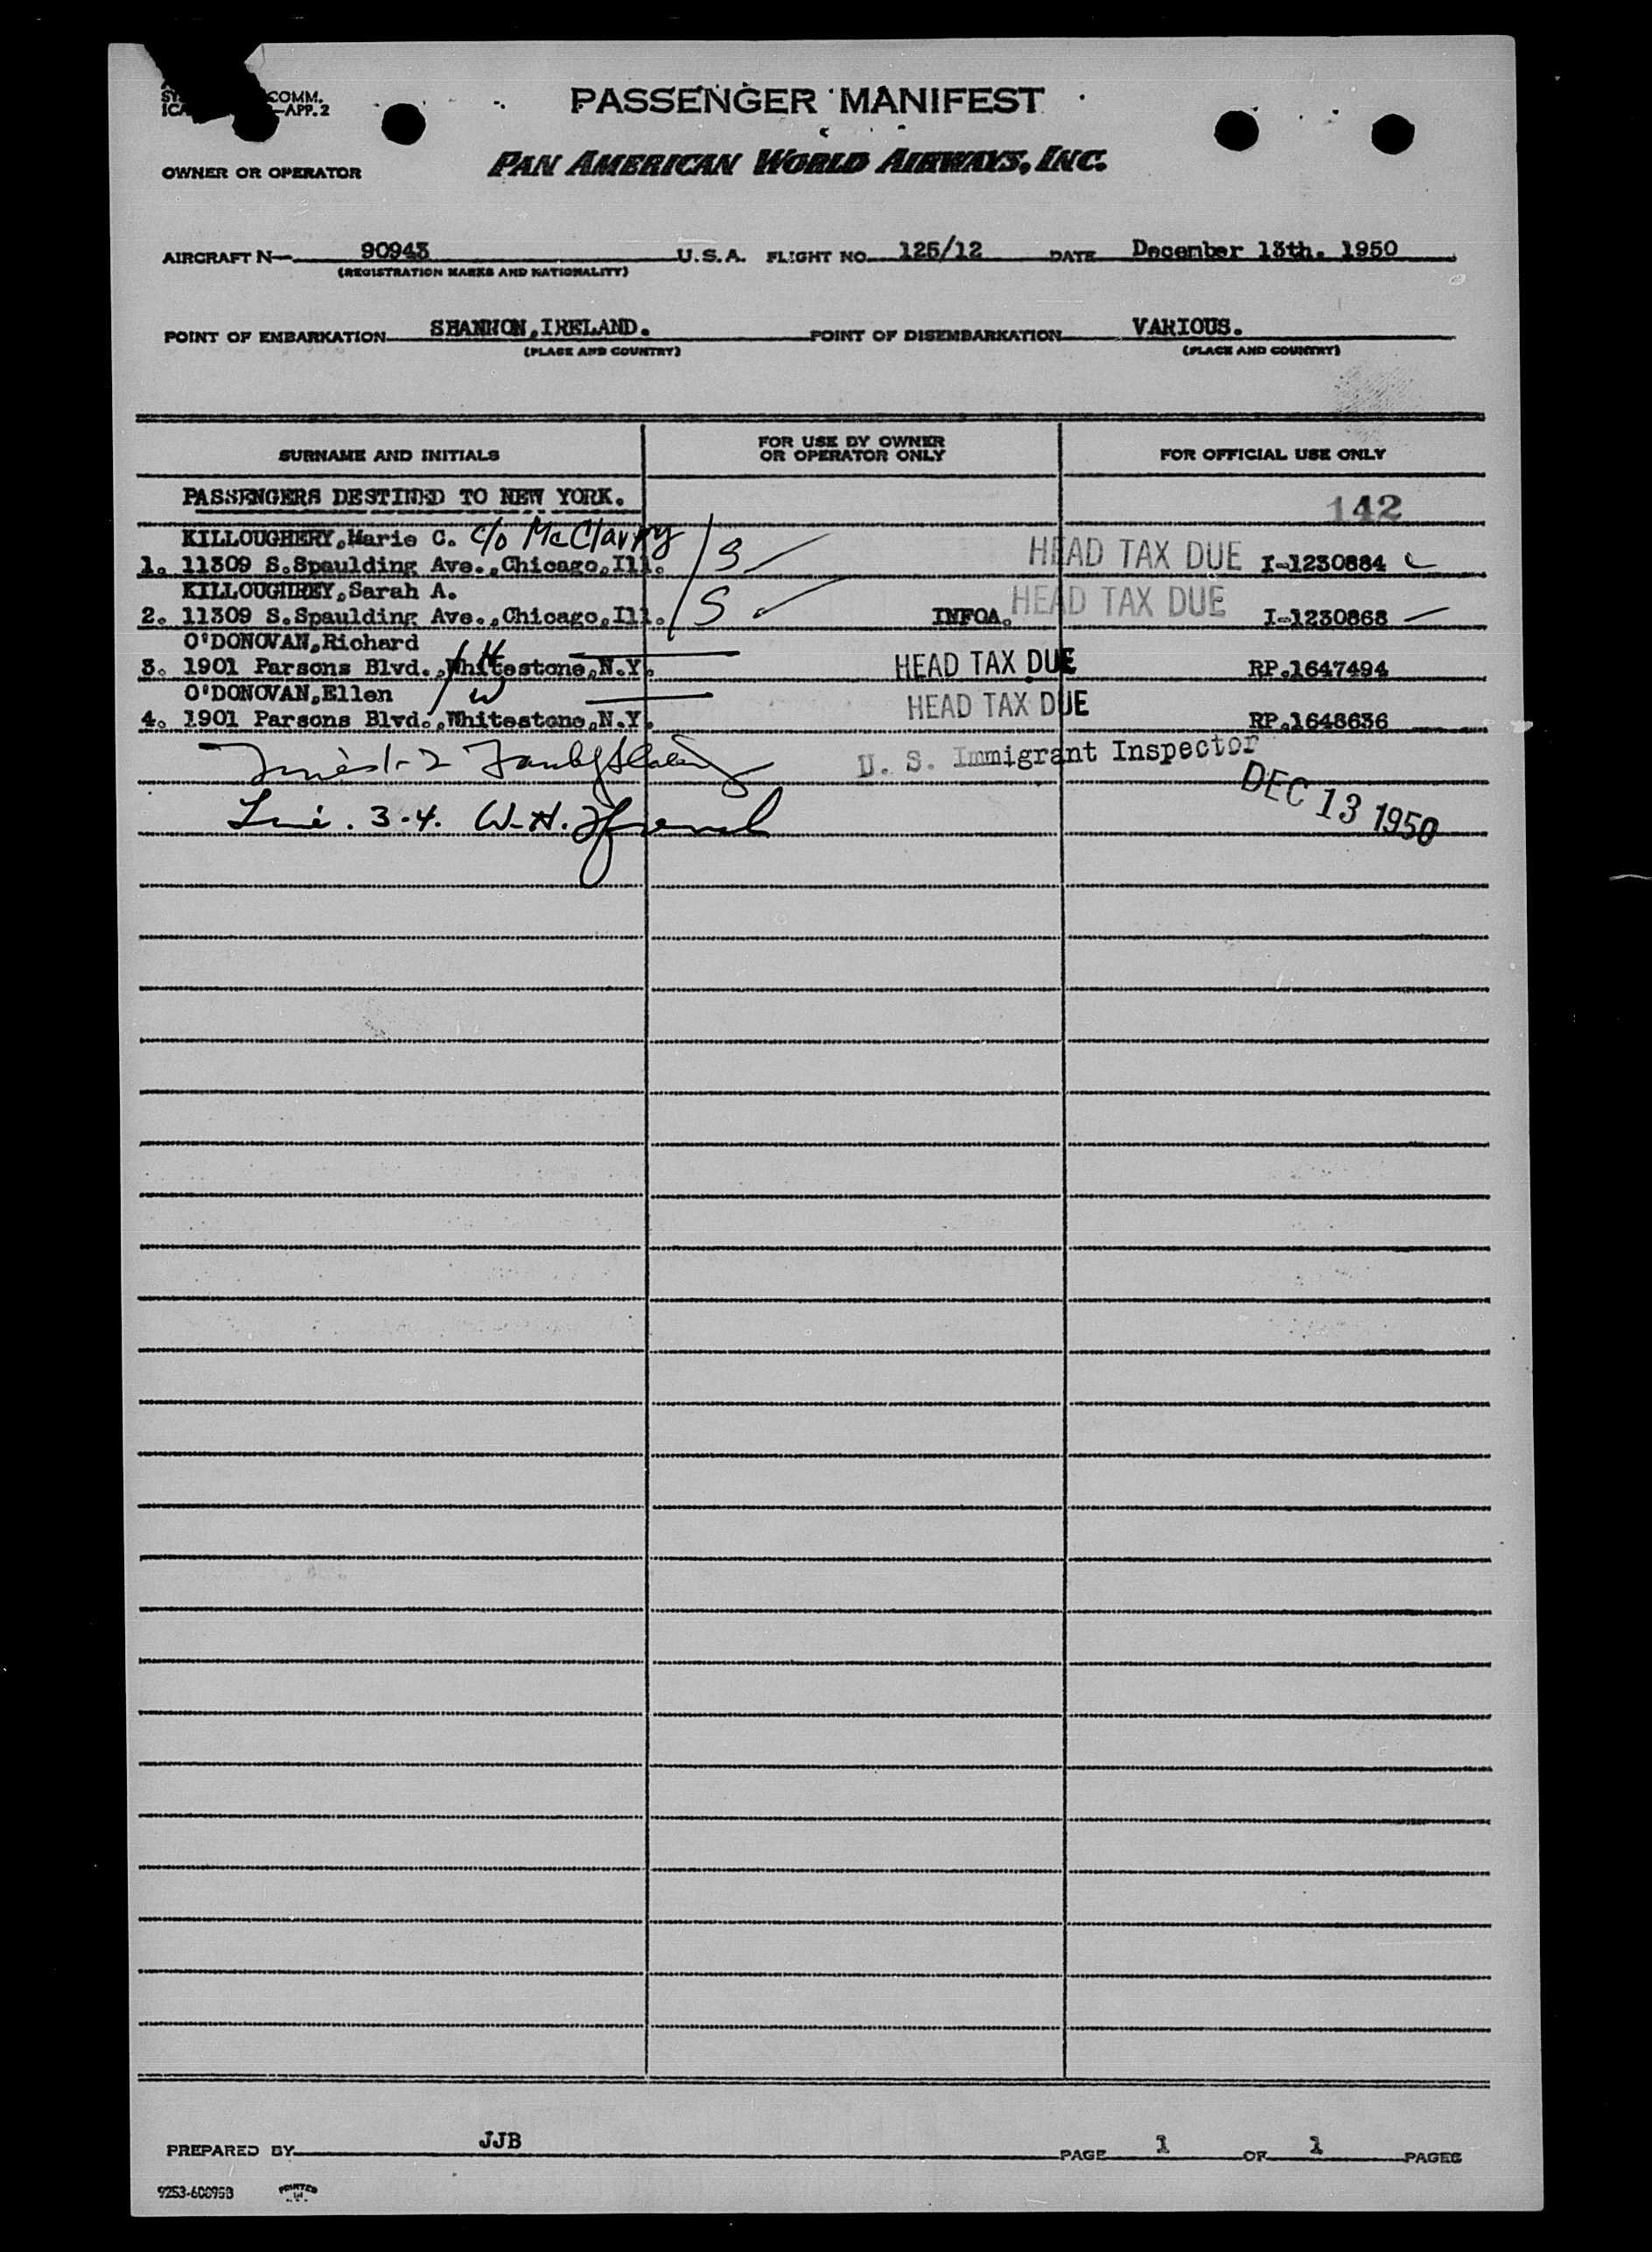 COMM.
-APP. 2
PASSENGER MANIFEST
OWNER OR OPERATOR PAN AMERICAN WORLD AIRWAYS, INC.
AIRCRAFT N— 90943 U.S.A. FLIGHT NO. 125/12 DATE December 13th. 1950
(REGISTRATION MARKS AND NATIONALITY)
POINT OF EMBARKATION SHANNON, IRELAND. POINT OF DISEMBARKATION VARIOUS.
(PLACE AND COUNTRY) (PLACE AND COUNTRY)
SURNAME AND INITIALS FOR USE BY OWNER OR OPERATOR ONLY FOR OFFICIAL USE ONLY
PASSENGERS DESTINED TO NEW YORK. 142
KILLOUGHERY, Marie C. c/o
1. 11309 S. Spaulding Ave., Chicago, Ill. S HEAD TAX DUE I-1230884
KILLOUGHREY, Sarah A.
2. 11309 S. Spaulding Ave., Chicago, Ill. S INFOA. HEAD TAX DUE I-1230868
O'DONOVAN, Richard H
3. 1901 Parsons Blvd., Whitestone, N.Y. HEAD TAX DUE RP.1647494
O'DONOVAN, Ellen W
4. 1901 Parsons Blvd., Whitestone, N.Y. HEAD TAX DUE RP.1648636
1-2 U. S. Immigrant Inspector
3-4. W. H. French DEC 13 1950
PREPARED BY JJB PAGE 1 OF 1 PAGES
PRINTED IN